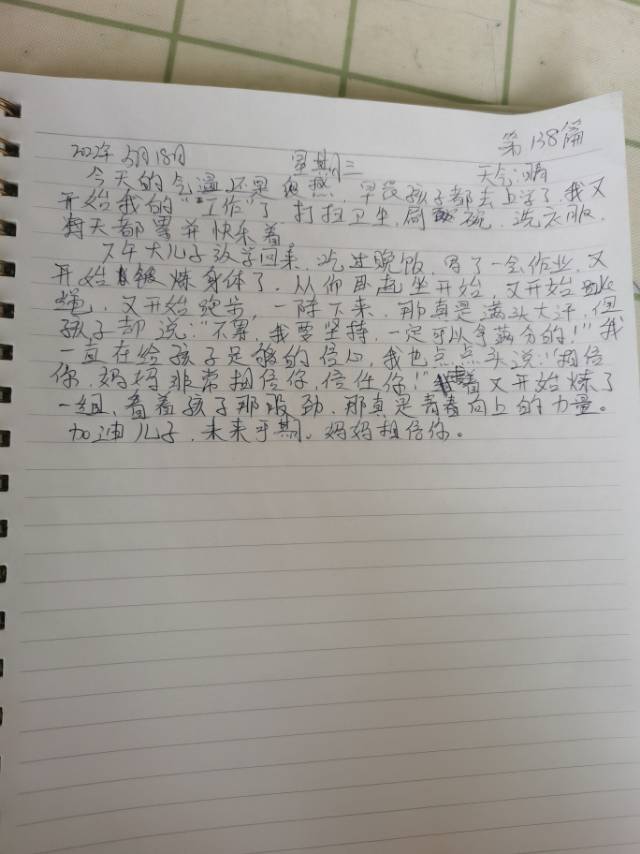 第138篇
2022年5月18日 星期三 天气:晴
今天的气温还是很热,早段孩子都去上学了,我又
开始我的"工作"了,打扫卫生,刷碗,洗衣服,
每天都累并快乐着。
下午大儿子放学回来,吃过晚饭,写了一会作业,又
开始锻炼身体了,从仰卧起坐开始,又开始跳
绳,又开始跑步,一阵下来,那真是满头大汗,但
孩子却说:"不累,我要坚持,一定可以争满分的!"我
一直在给孩子足够的信心,我也点点头说:"相信
你,妈妈非常相信你,信任你!"接着又开始炼了
一组,看着孩子那股劲,那真是青春向上的力量。
加油儿子,未来可期。妈妈相信你。